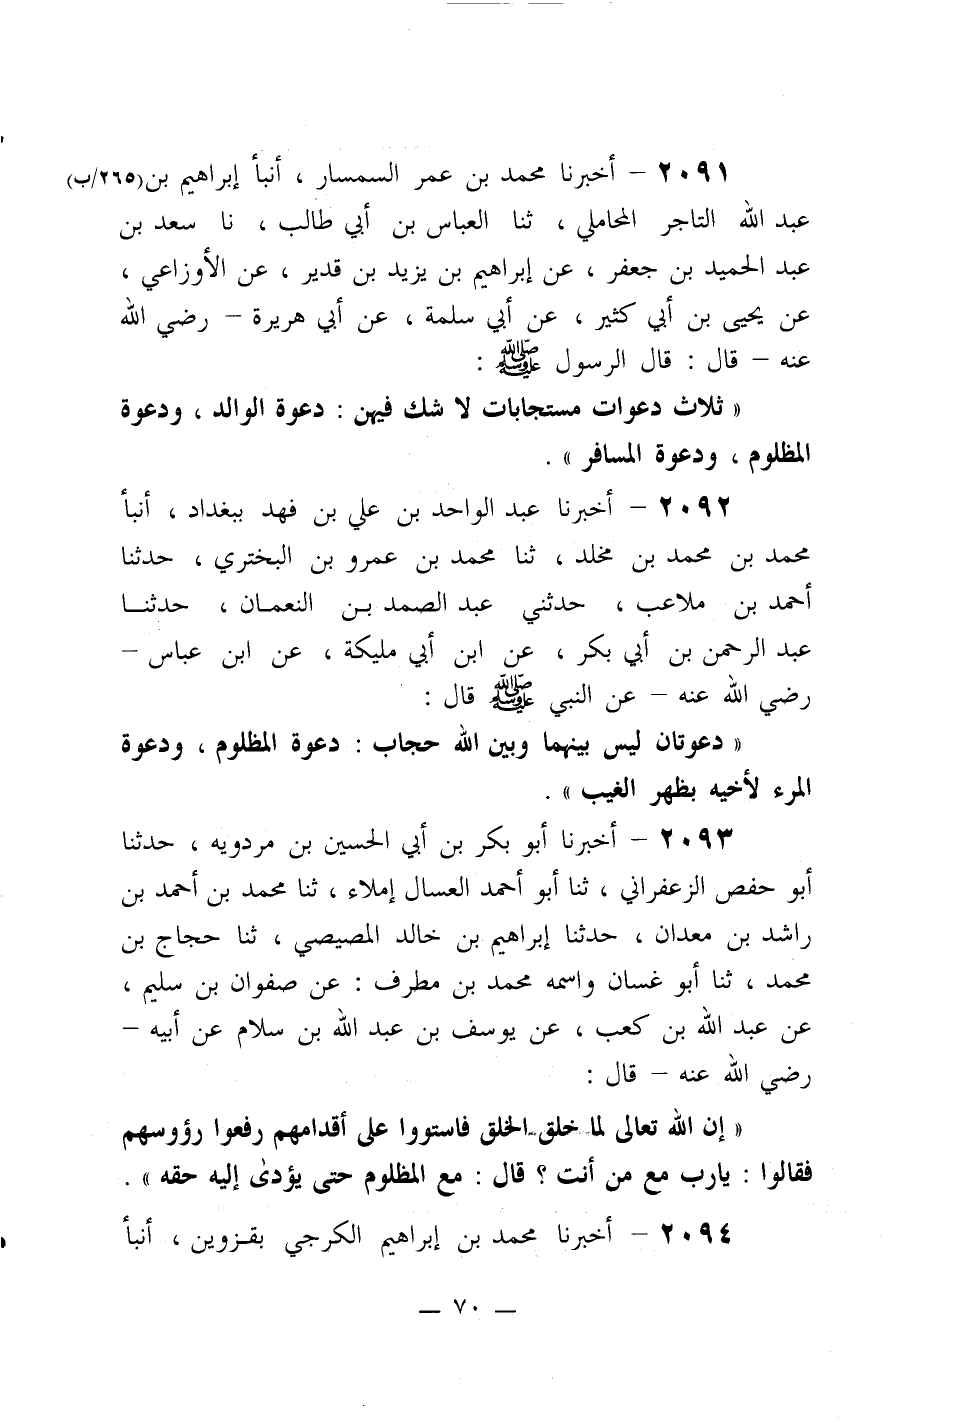 ٢٠٩١ – أخبرنا محمد بن عمر السمسار ، أنبأ إبراهيم بن (٢٦٥/ب)
عبد الله التاجر المحاملي ، ثنا العباس بن أبي طالب ، نا سعد بن
عبد الحميد بن جعفر ، عن إبراهيم بن يزيد بن قدير ، عن الأوزاعي ،
عن يحيى بن أبي كثير ، عن أبي سلمة ، عن أبي هريرة – رضي الله
عنه – قال : قال الرسول ﷺ :
« ثلاث دعوات مستجابات لا شك فيهن : دعوة الوالد ، ودعوة
المظلوم ، ودعوة المسافر » .
٢٠٩٢ – أخبرنا عبد الواحد بن علي بن فهد ببغداد ، أنبأ
محمد بن محمد بن مخلد ، ثنا محمد بن عمرو بن البختري ، حدثنا
أحمد بن ملاعب ، حدثني عبد الصمد بن النعمان ، حدثنا
عبد الرحمن بن أبي بكر ، عن ابن أبي مليكة ، عن ابن عباس –
رضي الله عنه – عن النبي ﷺ قال :
« دعوتان ليس بينهما وبين الله حجاب : دعوة المظلوم ، ودعوة
المرء لأخيه بظهر الغيب » .
٢٠٩٣ – أخبرنا أبو بكر بن أبي الحسين بن مردويه ، حدثنا
أبو حفص الزعفراني ، ثنا أبو أحمد العسال إملاء ، ثنا محمد بن أحمد بن
راشد بن معدان ، حدثنا إبراهيم بن خالد المصيصي ، ثنا حجاج بن
محمد ، ثنا أبو غسان واسمه محمد بن مطرف : عن صفوان بن سليم ،
عن عبد الله بن كعب ، عن يوسف بن عبد الله بن سلام عن أبيه –
رضي الله عنه – قال :
« إن الله تعالى لما خلق الخلق فاستووا على أقدامهم رفعوا رؤوسهم
فقالوا : يارب مع من أنت ؟ قال : مع المظلوم حتى يؤدىٰ إليه حقه » .
٢٠٩٤ – أخبرنا محمد بن إبراهيم الكرجي بقزوين ، أنبأ
— ٧٠ —